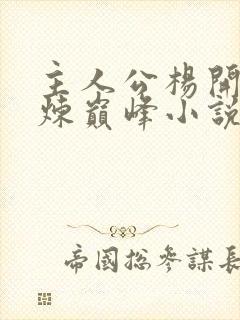 主人公楊開
煉巔峰小說
帝國總參謀長